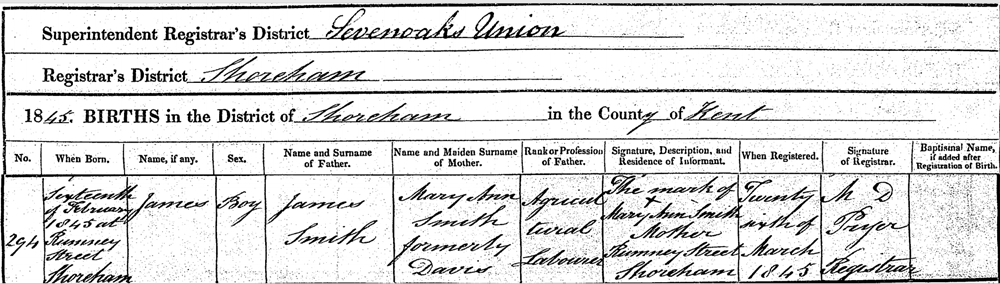 Superintendent Registrar's District Sevenoaks Union
Registrar's District Shoreham
1845. BIRTHS in the District of Shoreham in the County of Kent
No. When Born. Name, if any. Sex. Name and Surname of Father. Name and Maiden Surname of Mother. Rank or Profession of Father. Signature, Description, and Residence of Informant. When Registered. Signature of Registrar. Baptismal Name, if added after Registration of Birth.
294
Sixteenth
of February
1845 at
Rumney
Street
Shoreham
James
Boy
James
Smith
Mary Ann
Smith
formerly
Davis
Agricul
tural
Labourer
The mark of
X
Mary Ann Smith
Mother
Rumney Street
Shoreham
Twenty
sixth of
March
1845
M D
Pryer
Registrar